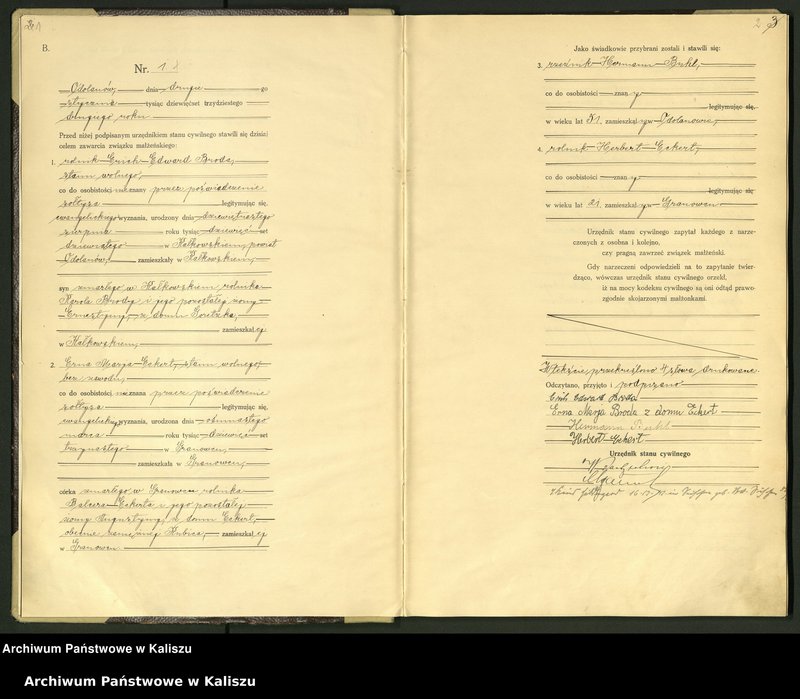 B.
Nr. 1
Odolanów, dnia drugie go
stycznia tysiąc dziewięćset trzydziestego
drugiego roku
Przed niżej podpisanym urzędnikiem stanu cywilnego stawili się dzisiaj
celem zawarcia związku małżeńskiego:
1. rolnik Erich Edward Broda,
stanu wolnego,
co do osobistości nieznany przez poświadczenie
sołtysa legitymując się,
ewangelickiego wyznania, urodzony dnia dziewiętnastego
sierpnia roku tysiąc dziewięć set
dziewiątego w Kałkowskiem, powiat
Odolanów, zamieszkały w Kałkowskiem,
syn zmarłego w Kałkowskiem rolnika
Karola Brody i jego pozostałej żony
Ernestyny, z domu Goretzka,
zamieszkałej
w Kałkowskiem,
2. Erna Marja Eckert, stanu wolnego,
bez zawodu,
co do osobistości nieznana przez poświadczenie
sołtysa legitymując się,
ewangelickiego wyznania, urodzona dnia ósmnastego
marca roku tysiąc dziewięć set
trzynastego w Granowcu,
zamieszkała w Granowcu,
córka zmarłego w Granowcu rolnika
Eckerta i jego pozostałej
żony Augustyny, z domu Eckert,
obecnie zamężnej Kubica, zamieszkałej
w Granowcu
2
3
Jako świadkowie przybrani zostali i stawili się:
3. Hermann
co do osobistości znany
legitymując się,
w wieku lat 51, zamieszkały w Odolanowie,
4. rolnik Herbert Eckert,
co do osobistości znany
legitymując się,
w wieku lat 21, zamieszkały w Granowcu
Urzędnik stanu cywilnego zapytał każdego z narze-
czonych z osobna i kolejno,
czy pragną zawrzeć związek małżeński.
Gdy narzeczeni odpowiedzieli na to zapytanie twier-
dząco, wówczas urzędnik stanu cywilnego orzekł,
iż na mocy kodeksu cywilnego są oni odtąd prawo-
zgodnie skojarzonymi małżonkami.
W tekście przekreślono 4 słowa drukowane.
Odczytano, przyjęto i podpisano
Erich Edward Broda
Erna Marja Broda z domu Eckert
Hermann
Herbert Eckert
Urzędnik stanu cywilnego
W zastępstwie
Archiwum Państwowe w Kaliszu
Archiwum Państwowe w Kaliszu